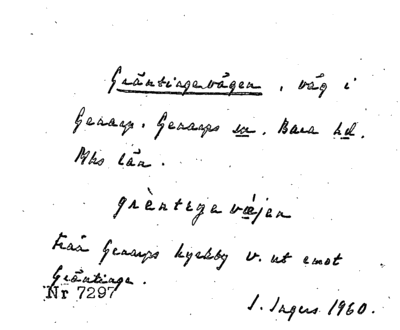 Gräntingevägen, väg i
Genarp. Genarps sn. Bara hd.
Mhs län.
grènteŋevæ̀jen
Från Genarps kyrkby v. ut emot
Gräntinge.
Nr 7297
I. Ingers 1960.